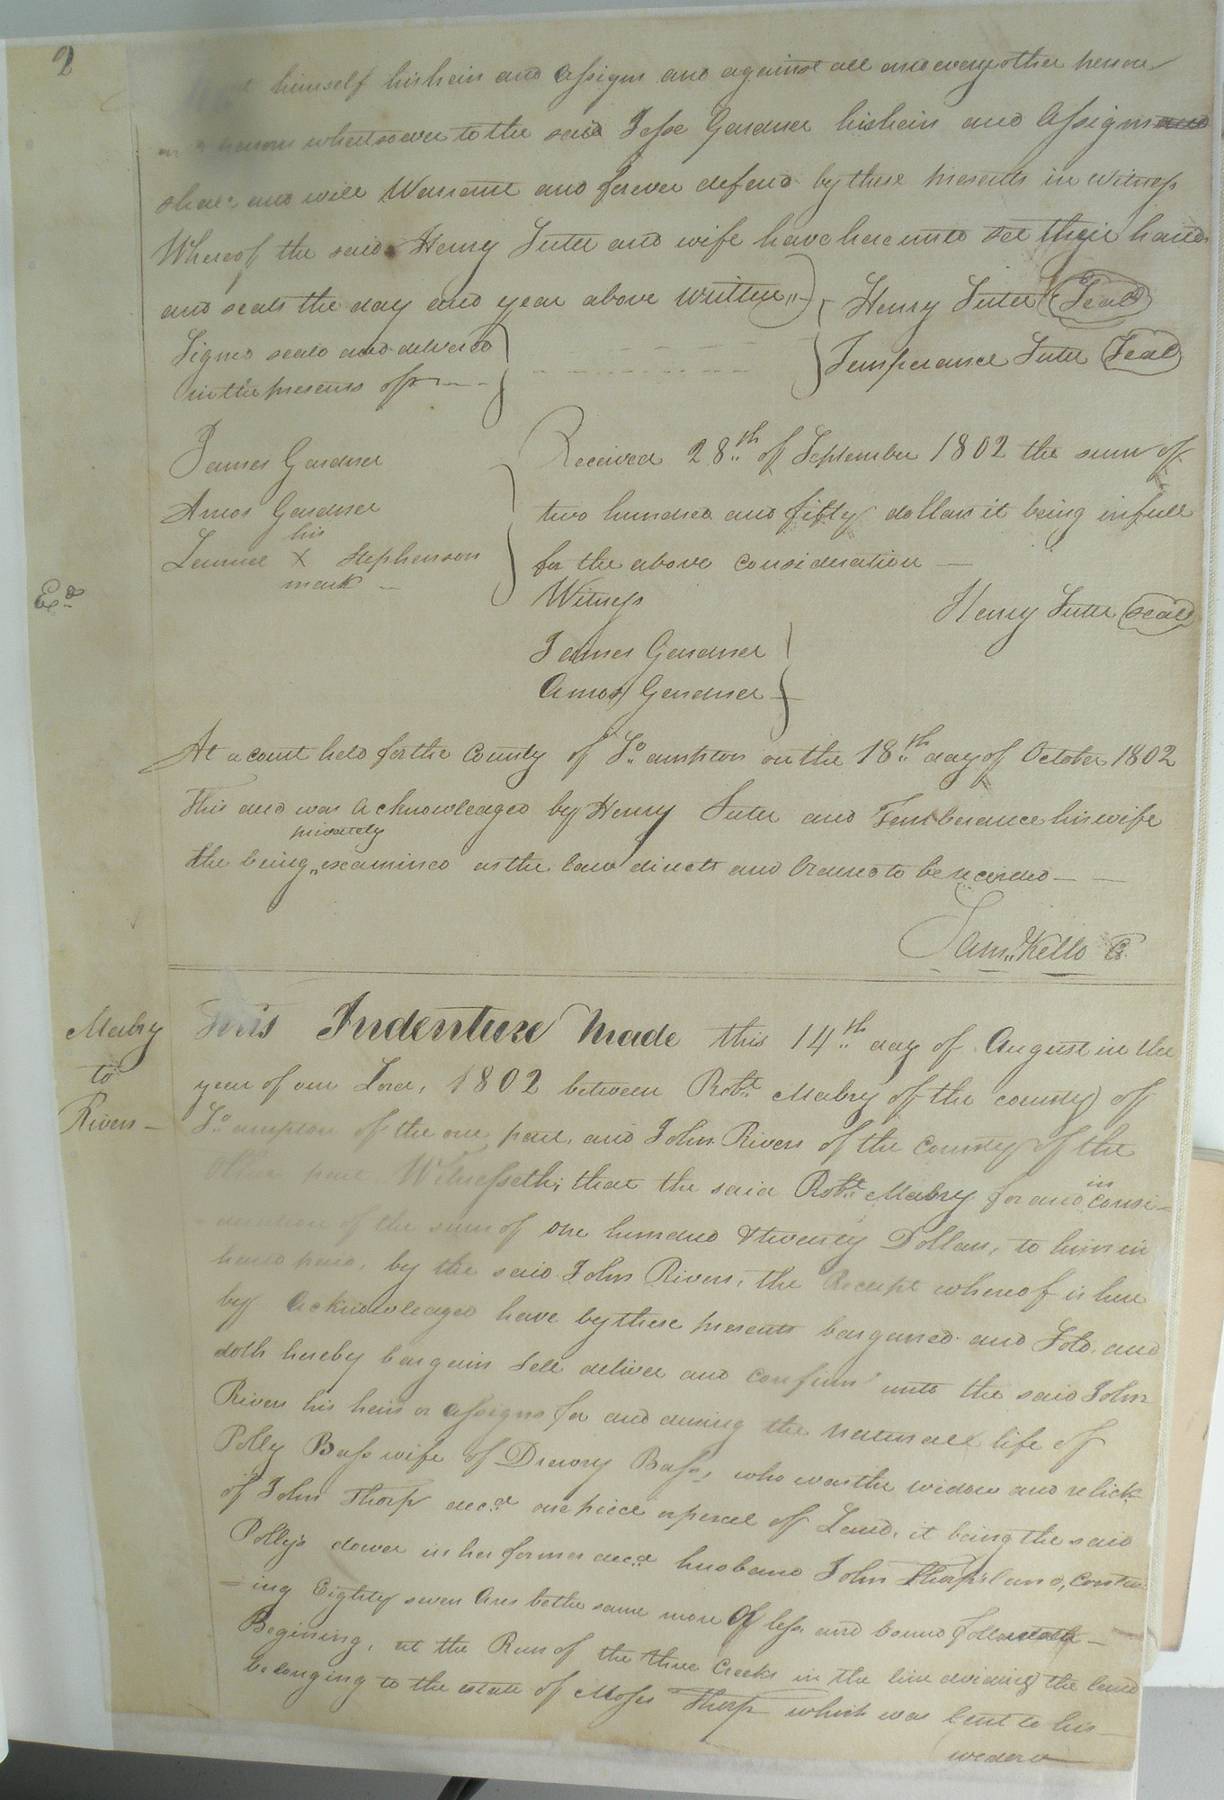 2
himself his heirs and Assigns and against all and every other person
or persons whatsoever to the said Jesse Gardner his heirs and Assigns and
shall and will Warrant and forever defend by these presents in witness
Whereof the said Henry Suter and wife have hereunto set their hands
and seals the day and year above written Henry Suter (Seal)
Signed seald and delivered
in the presents off Temperance Suter (Seal)
James Gardner
Amos Gardner
his
Lemuel X Stephenson
mark
Received 28th of September 1802 the sum of
two hundred and fifty dollars it being in full
for the above consideration
Witness
Henry Suter (seal)
James Gardner
Amos Gardner
Exd
At a court held for the County of So ampton on the 18th day of October 1802
This and was acknowledged by Henry Suter and Temberance his wife
privately
she being examined as the law directs and Ordered to be recorded
Saml Kello Cr
Mabry
to
Rivers
This Indenture Made this 14th day of August in the
year of our Lord, 1802 between Robt Mabry of the county of
So ampton of the one part, and John Rivers of the county of the
other part Witnesseth; that the said Robt Mabry for and in consi-
-deration of the sum of one hundred & twenty Dollars, to him in
hand paid, by the said John Rivers, the Receipt whereof is here
by acknowledged have by these presents bargained and Sold, and
doth hereby bargain Sell deliver and confirm unto the said John
Rivers his heirs or assigns for and during the naturall life of
Polly Bass wife of Drewry Bass, who was the widow and relick
of John Thorp decd one piece or parcel of Land, it being the said
Polly's dower in her former decd husband John Thorp's land, contain
-ing Eighty seven Acres be the same more Or less and bound followeth
Begining, at the Run of the three Creeks in the line dividing the land
belonging to the estate of Moses Thorp which was lent to his
widow